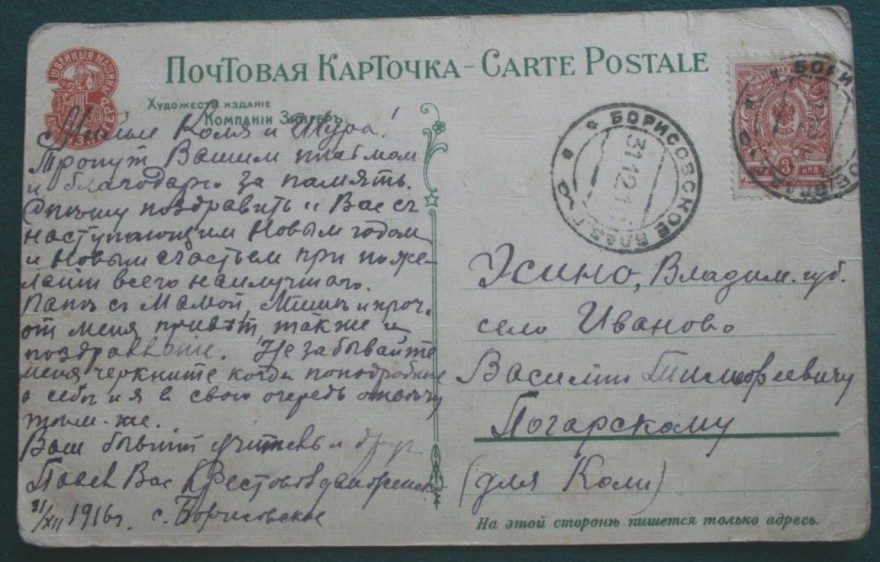 ПОЧТОВАЯ КАРТОЧКА - CARTE POSTALE
ХУДОЖЕСТВ. ИЗДАНІЕ
КОМПАНІИ ЗИНГЕРЪ
ШВЕЙНЫЯ МАШИНЫ
БОРИСОВСКОЕ ВЛАД. Г.
31 12 1
Милые Коля и Шура!
Тронут Вашим письмом
и благодарю за память.
Спешу поздравить и Вас съ
наступающим Новым годом
и новым счастьем при поже-
лании всего наилучшаго.
Папе с Мамой, Мише и проч.
от меня привѣт, также и
поздравление. Не забывайте
меня черкните когда поподробнее
о себе и я в свою очередь отвечу
тѣм-же.
Ваш бывший учитель и друг
Павел Вас
31/XII 1916 г. с. Борисовское
Эсино, Владим. губ.
село Иваново
Василию Тимофеевичу
Погарскому
(для Коли)
На этой сторонѣ пишется только адресъ.